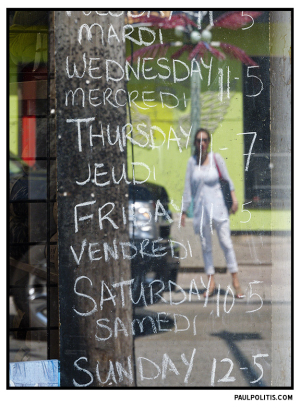 TUESDAY 11-5
MARDI
WEDNESDAY 11-5
MERCREDI
THURSDAY 11-7
JEUDI
FRIDAY 11-5
VENDREDI
SATURDAY 10-5
SAMEDI
SUNDAY 12-5
PAULPOLITIS.COM